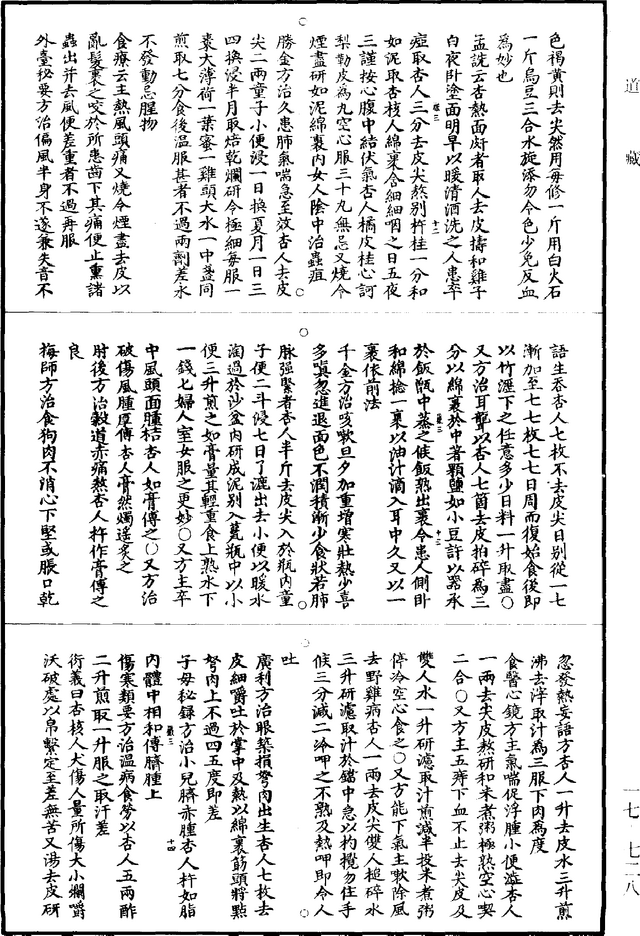 道藏
色褐黄則去尖然用每修一斤用白火石
一斤烏豆三合水旋添勿令色少免反血
為妙也
孟詵云杏熱面皯者取人去皮擣和雞子
白夜卧塗面明早以暖清酒洗之人患卒
瘂取杏人三分去皮尖熬別杵桂一分和
如泥取杏核人綿裹含細細咽之日五夜
三謹按心腹中結伏氣杏人橘皮桂心訶
梨勒皮為丸空心服三十丸無忌又燒令
煙盡研如泥綿裹內女人陰中治蟲疽
勝金方治久患肺氣喘急至效杏人去皮
尖二兩童子小便浸一日一換夏月一日三
四換浸半月取焙乾爛研令極細每服一
棗大薄荷一葉蜜一雞頭大水一中盞同
煎取七分食後溫服甚者不過兩劑差永
不發動忌腥物
食療云主熱風頭痛又燒令煙盡去皮以
亂髮裹之咬於所患齒下其痛便止熏諸
蟲出并去風便差重者不過再服
外臺秘要方治偏風半身不遂兼失音不
語生吞杏人七枚不去皮尖日別從一七
漸加至七七枚七七日周而復始食後即
以竹瀝下之任意多少日料一升取盡○
又方治耳聾以杏人七箇去皮拍碎為三
分以綿裹於中著顆鹽如小豆許以器承
於飯甑中蒸之候飯熟出裹令患人側卧
和綿捻一裹以油汁滴入耳中久又以一
裹依前法
千金方治咳嗽旦夕加重增寒壯熱少喜
多嗔忽進退面色不潤積漸少食狀若肺
脉強緊者杏人半斤去皮尖入於瓶內童
子便二斗浸七日了漉出去小便以暖水
淘過於沙盆內研成泥別入甆瓶中以小
便三升煎之如膏量其輕重食上熟水下
一錢七婦人室女服之更妙○又方主卒
中風頭面腫桔杏人如膏傅之○又方治
破傷風腫厚傅杏人膏然燭遙炙之
肘後方治穀道赤痛熬杏人杵作膏傅之
良
梅師方治食狗肉不消心下堅或脹口乾
忽發熱妄語方杏人一升去皮水三升煎
沸去滓取汁為三服下肉為度
食醫心鏡方主氣喘促浮腫小便澁杏人
一兩去尖皮熬研和米煮粥極熟空心喫
二合○又方主五痔下血不止去尖皮及
雙人水一升研濾取汁煎減半投米煮粥
停冷空心食之○又方能下氣主嗽除風
去野雞病杏人一兩去皮尖雙人槌碎水
三升研濾取汁於鐺中急以杓攪勿住手
候三分減二冷呷之不熟及熱呷即令人
吐
廣利方治眼築損胬肉出生杏人七枚去
皮細嚼吐於掌中及熱以綿裹筯頭將點
胬肉上不過四五度即差
子母秘錄方治小兒臍赤腫杏人杵如脂
內體中相和傅臍腫上
傷寒類要方治溫病食勞以杏人五兩酢
二升煎取一升服之取汗差
衍義曰杏核人犬傷人量所傷大小爛嚼
沃破處以帛繫定至差無苦又湯去皮研
一七 七二八